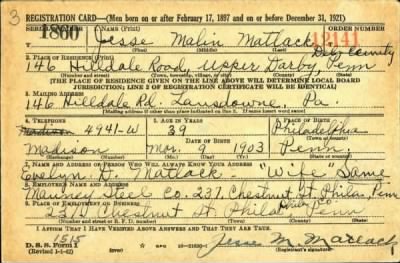 3
REGISTRATION CARD—(Men born on or after February 17, 1897 and on or before December 31, 1921)
SERIAL NUMBER 1. NAME (Print) ORDER NUMBER
Jesse Malin Matlack 12141
(First) (Middle) (Last)
2. PLACE OF RESIDENCE (Print) Del. County
146 Hilldale Road, Upper Darby, Penn
(Number and street) (Town, township, village, or city) (County) (State)
[THE PLACE OF RESIDENCE GIVEN ON THE LINE ABOVE WILL DETERMINE LOCAL BOARD
JURISDICTION; LINE 2 OF REGISTRATION CERTIFICATE WILL BE IDENTICAL]
3. MAILING ADDRESS
146 Hilldale Rd. Lansdowne, Pa.
(Mailing address if other than place indicated on line 2. If same insert word same)
4. TELEPHONE 5. AGE IN YEARS 6. PLACE OF BIRTH
4941-W 39 Philadelphia
DATE OF BIRTH
Madison Mar. 9 1903 Penn.
7. NAME AND ADDRESS OF PERSON WHO WILL ALWAYS KNOW YOUR ADDRESS
Evelyn D. Matlack - "Wife" Same
8. EMPLOYER'S NAME AND ADDRESS
Steel Co. 237 Chestnut St. Phila. Penn
9. PLACE OF EMPLOYMENT OR BUSINESS
237 Chestnut St Phila Penn
(Number and street or R. F. D. number) (Town) (County) (State)
I AFFIRM THAT I HAVE VERIFIED ABOVE ANSWERS AND THAT THEY ARE TRUE.
D. S. S. Form 1
(Revised 1-1-42)
Jesse M. Matlack